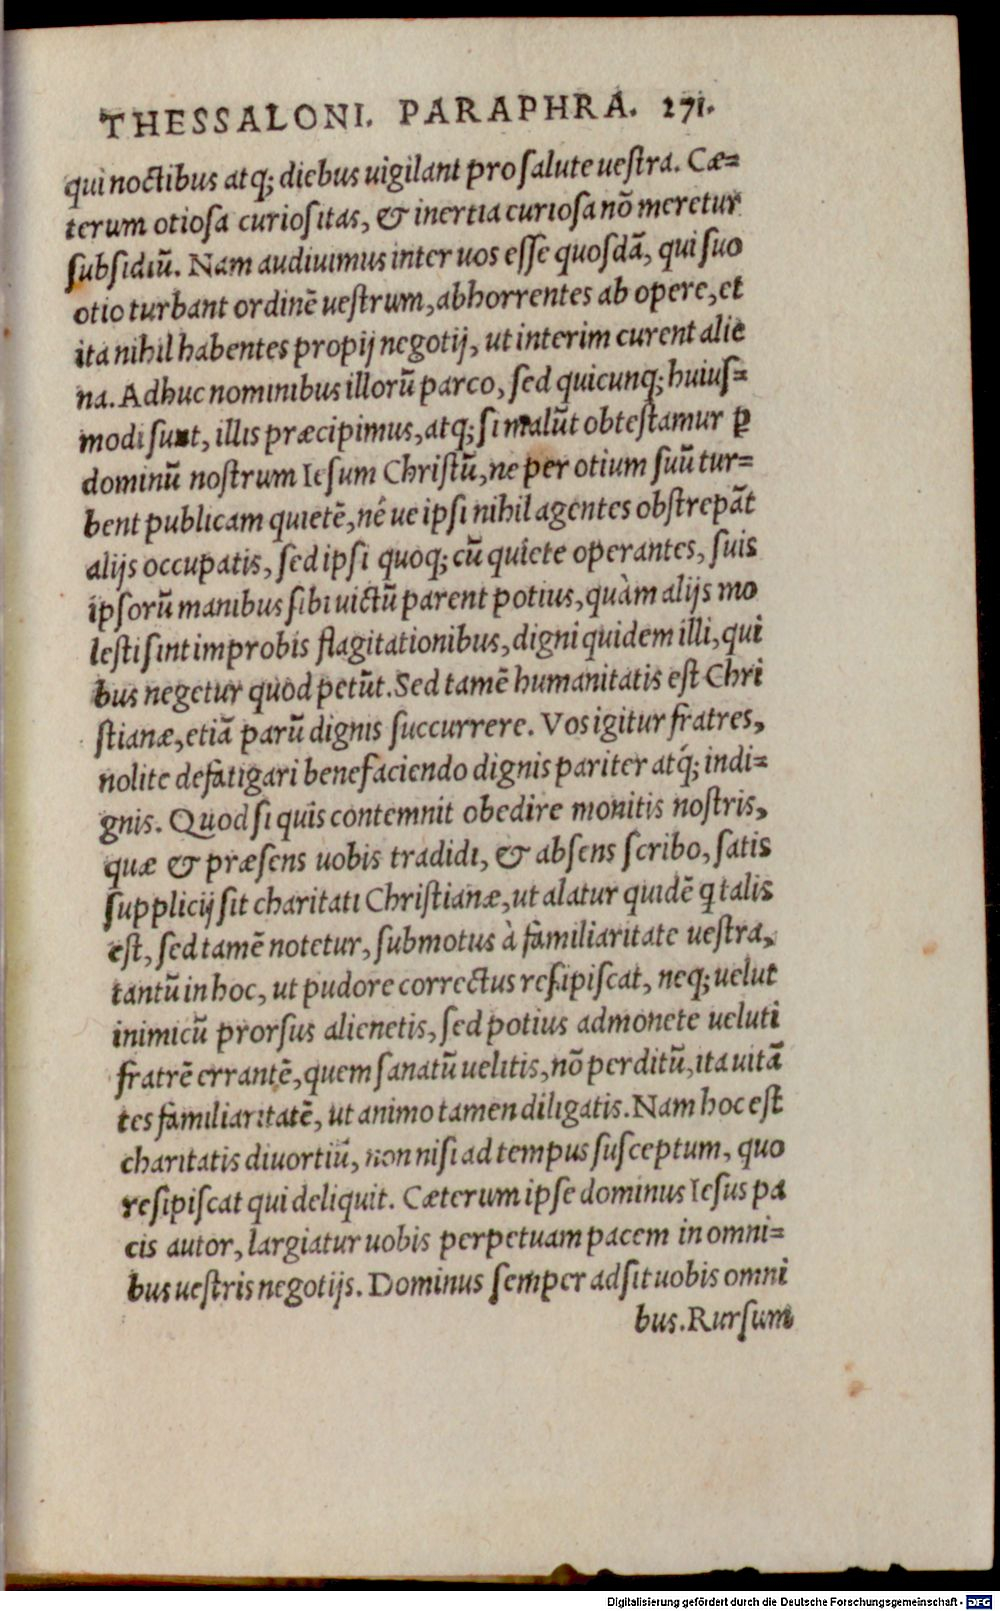 THESSALONI. PARAPHRA. 271.
qui noctibus atq; diebus uigilant pro salute uestra. Cæ=
terum otiosa curiositas, & inertia curiosa nō meretur
subsidiū. Nam audiuimus inter uos esse quosdā, qui suo
otio turbant ordinē uestrum, abhorrentes ab opere, et
ita nihil habentes propij negotij, ut interim curent alie
na. Adhuc nominibus illorū parco, sed quicunq; huius=
modi sunt, illis præcipimus, atq; si malūt obtestamur ꝑ
dominū nostrum Iesum Christū, ne per otium suū tur=
bent publicam quietē, né ue ipsi nihil agentes obstrepāt
alijs occupatis, sed ipsi quoq; cū quiete operantes, suis
ipsorū manibus sibi uictū parent potius, quàm alijs mo
lesti sint improbis flagitationibus, digni quidem illi, qui
bus negetur quod petūt. Sed tamē humanitatis est Chri
stianæ, etiā parū dignis succurrere. Vos igitur fratres,
nolite defatigari benefaciendo dignis pariter atq́; indi=
gnis. Quod si quis contemnit obedire monitis nostris,
quæ & præsens uobis tradidi, & absens scribo, satis
supplicij sit charitati Christianæ, ut alatur quidē q talis
est, sed tamē notetur, submotus à familiaritate uestra,
tantū in hoc, ut pudore correctus resipiscat, neq; uelut
inimicū prorsus alienetis, sed potius admonete ueluti
fratrē errantē, quem sanatū uelitis, nō perditū, ita uitā
tes familiaritatē, ut animo tamen diligatis. Nam hoc est
charitatis diuortiū, non nisi ad tempus susceptum, quo
resipiscat qui deliquit. Cæterum ipse dominus Iesus pa
cis autor, largiatur uobis perpetuam pacem in omni=
bus uestris negotijs. Dominus semper adsit uobis omni
bus. Rursum
Digitalisierung gefördert durch die Deutsche Forschungsgemeinschaft - DFG